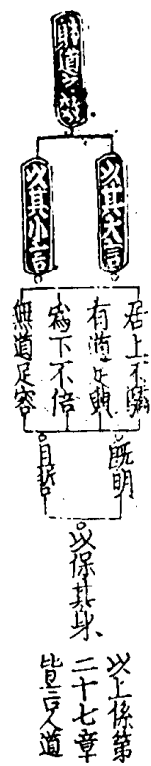 脩道之教
以其大言
以其小言
居上不驕
有道足興
為下不倍
無道足容
既明
且哲
以保其身
以上係第
二十七章
皆言人道